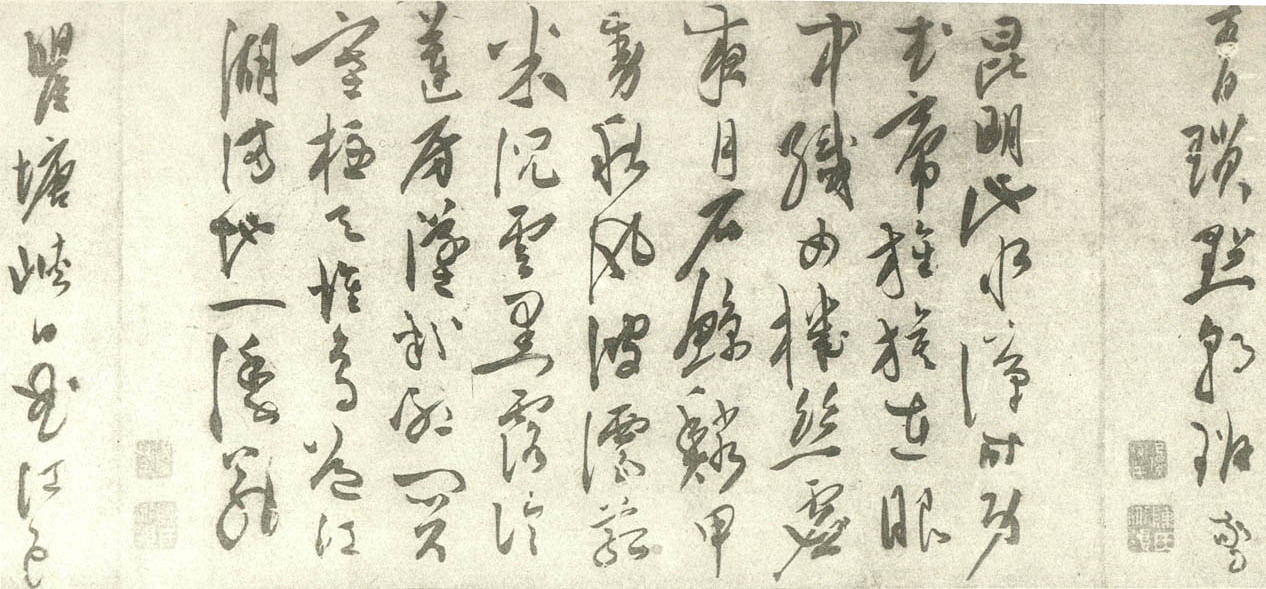 青瑣點朝班
昆明池水漢時功
武帝旌旗在眼
中織女機絲虛
夜月石鯨鱗甲
動秋風波漂菰
米沉雲黑露冷
蓮房墜粉紅關
塞極天惟鳥道江
湖滿地一漁翁
瞿塘峽口曲江頭